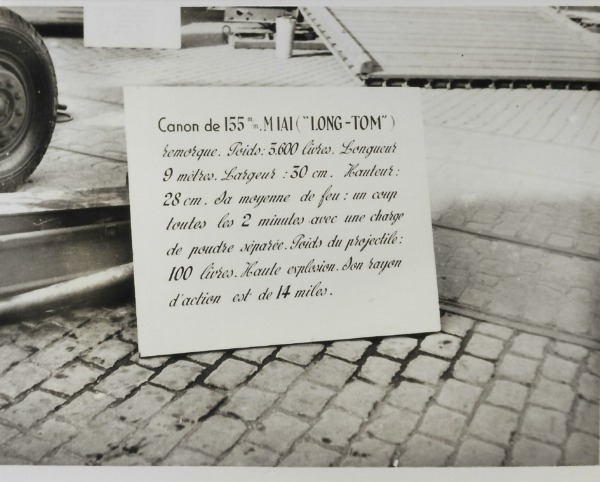 Canon de 155 m/m. M1A1 ("LONG-TOM")
remorque. Poids: 3.600 livres. Longueur
9 mètres. Largeur : 30 cm. Hauteur:
28 cm. Sa moyenne de feu : un coup
toutes les 2 minutes avec une charge
de poudre séparée. Poids du projectile:
100 livres. Haute explosion. Son rayon
d'action est de 14 miles.